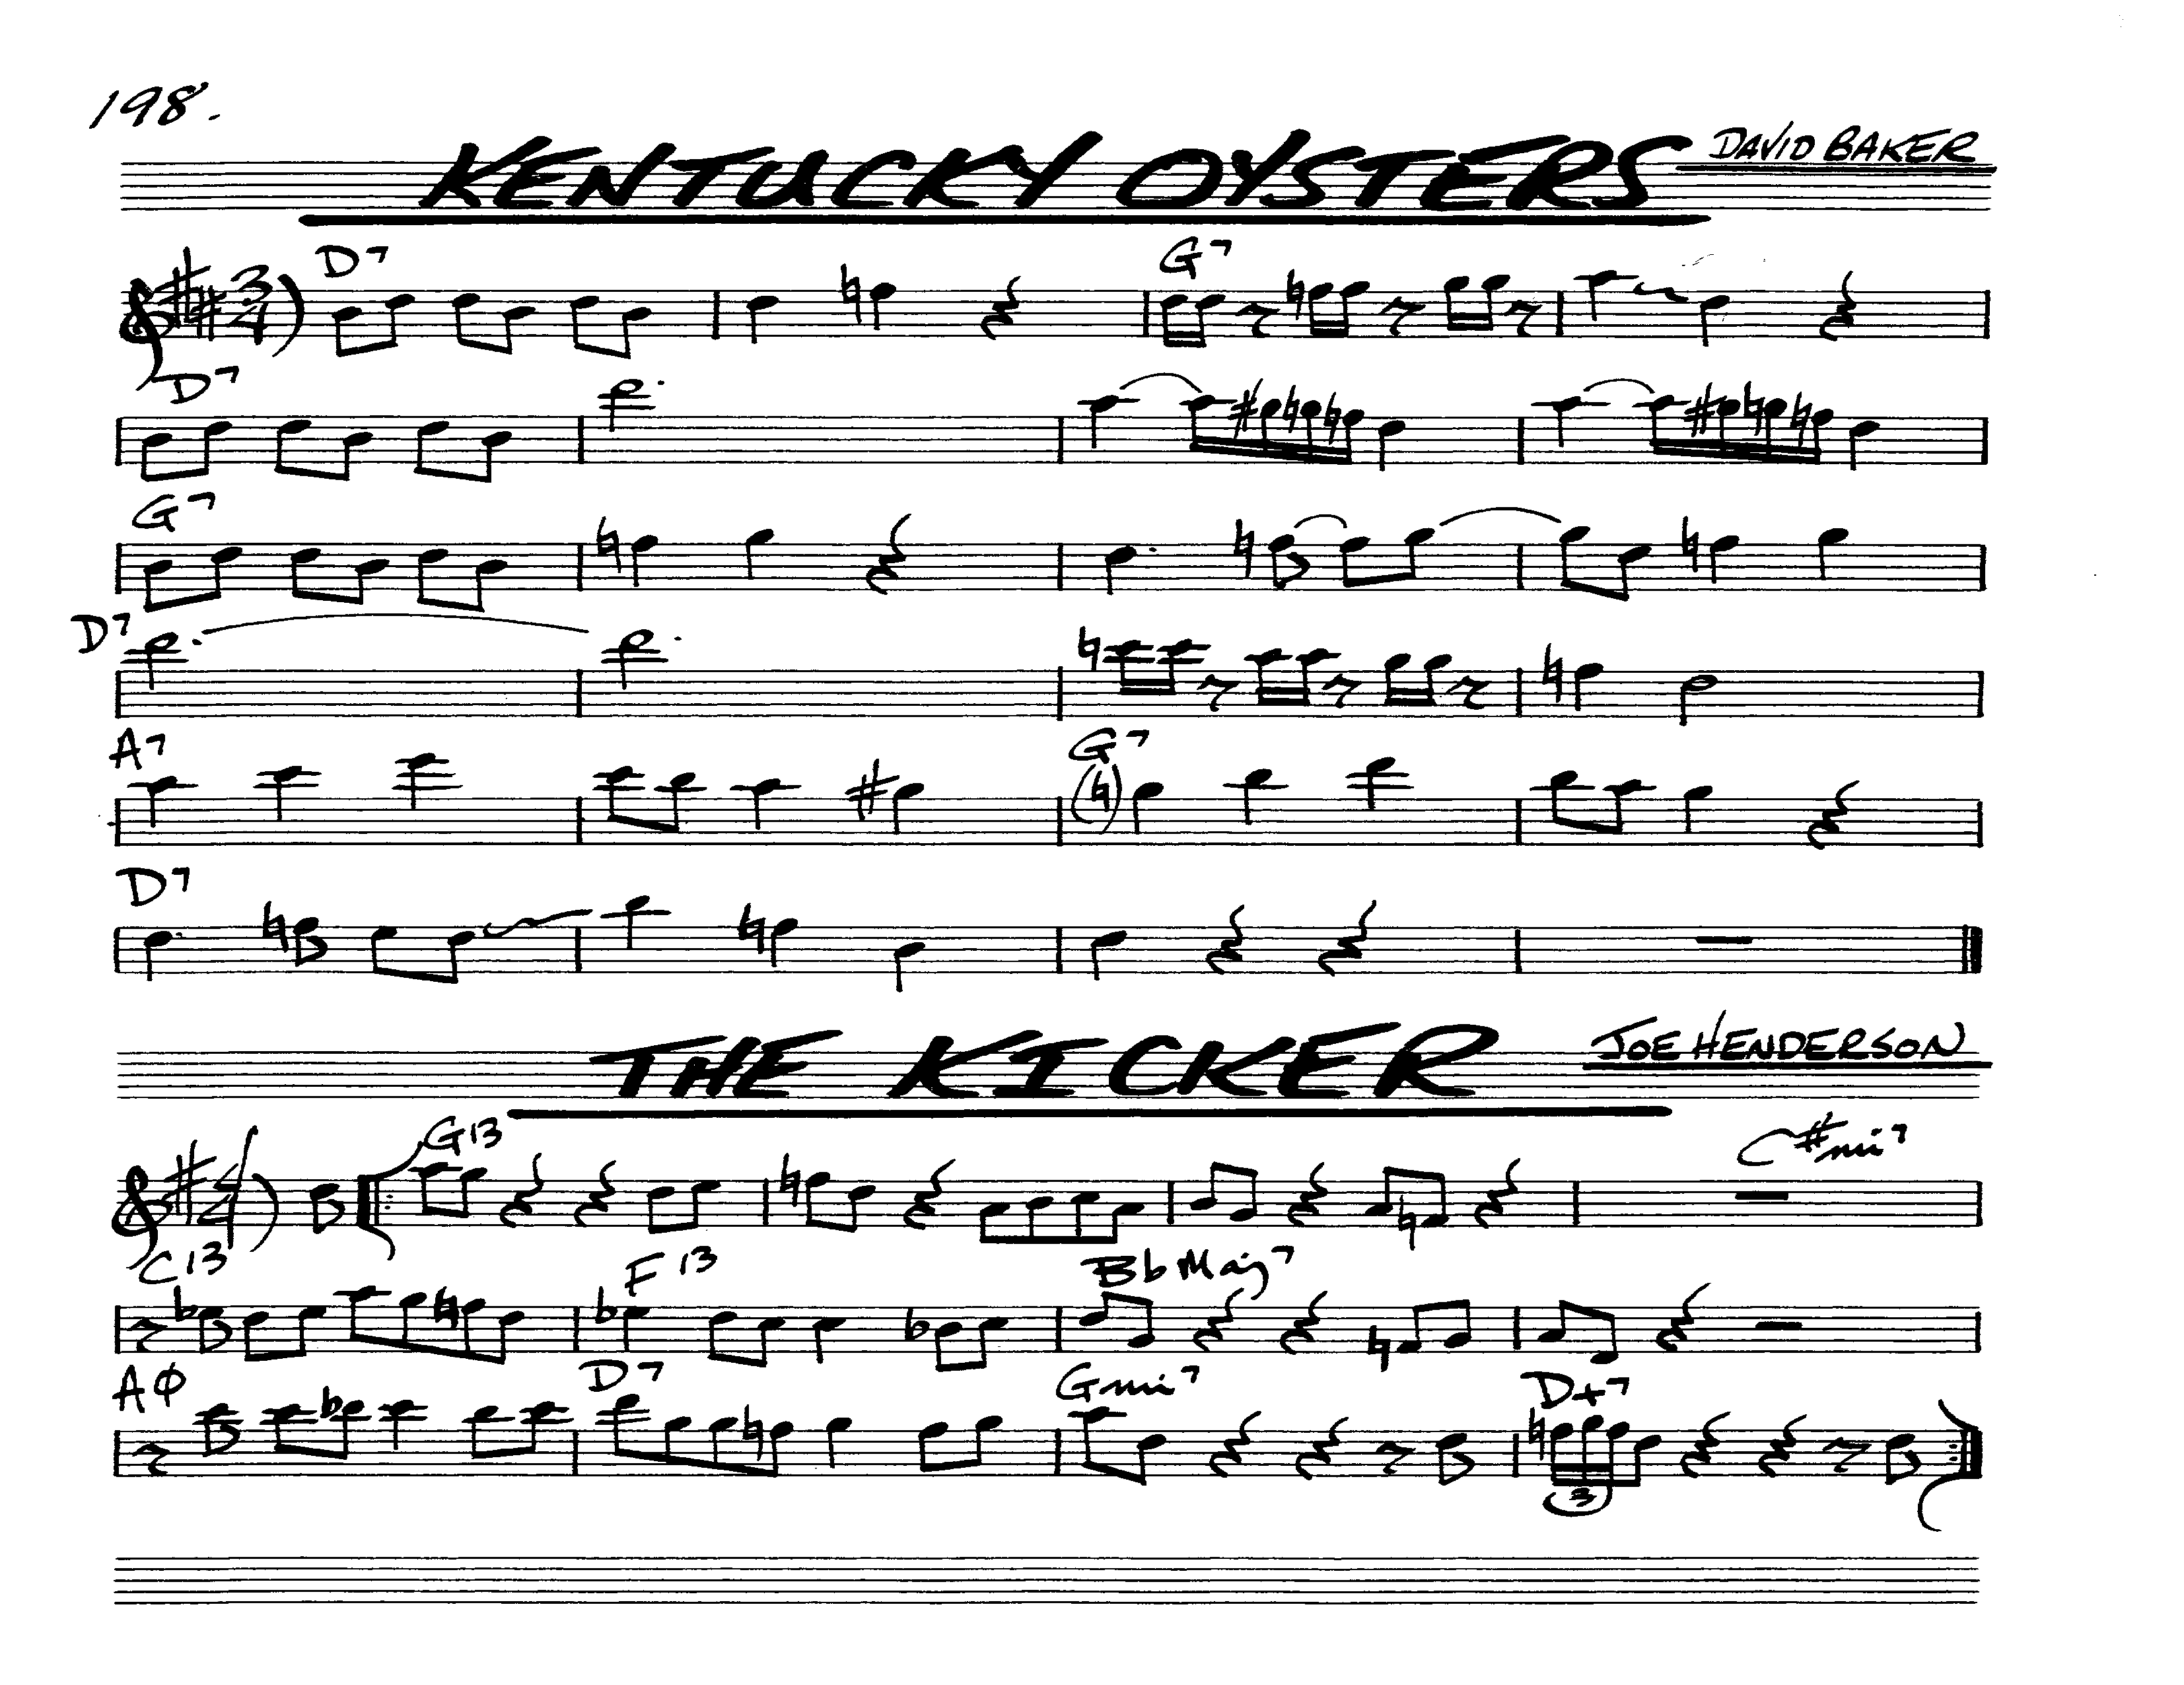 198.
KENTUCKY OYSTERS DAVID BAKER
3/4 D7 G7
D7
G7
D7
A7 G7
D7
THE KICKER JOE HENDERSON
4/4 G13 C#mi7
C13 F13 BbMaj7
AØ D7 Gmi7 D+7
3